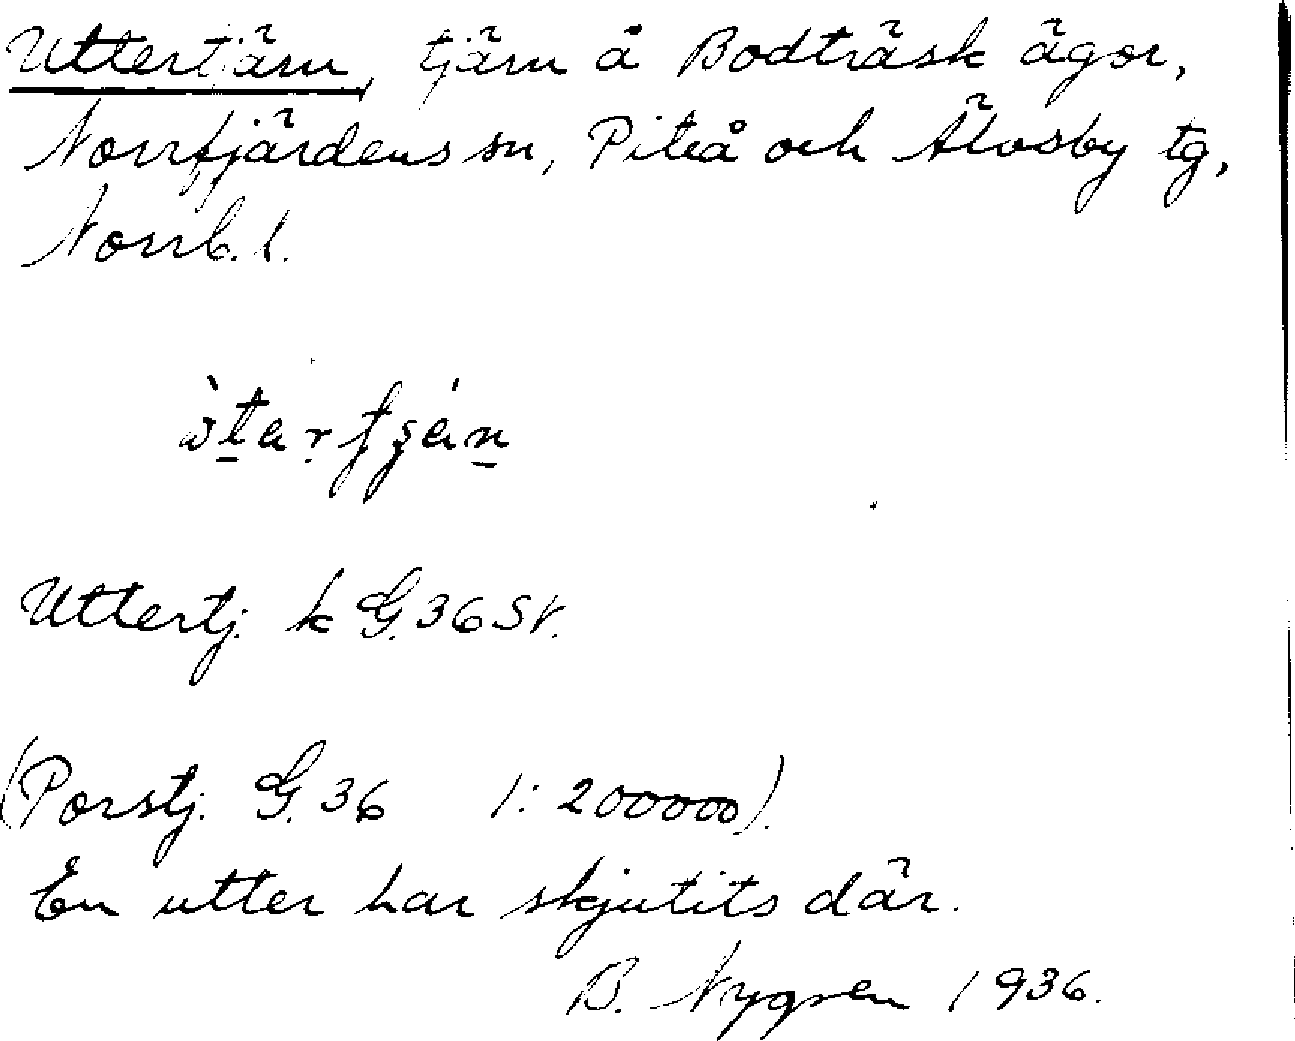 Uttertjärn, tjärn å Bodträsk ägor,
Norrfjärdens sn, Piteå och Älvsby tg,
Norrb. l.
Uttertj. k G. 36 SV.
(Porstj. G. 36 1:200000).
En utter har skjutits där.
B. Nygren 1936.